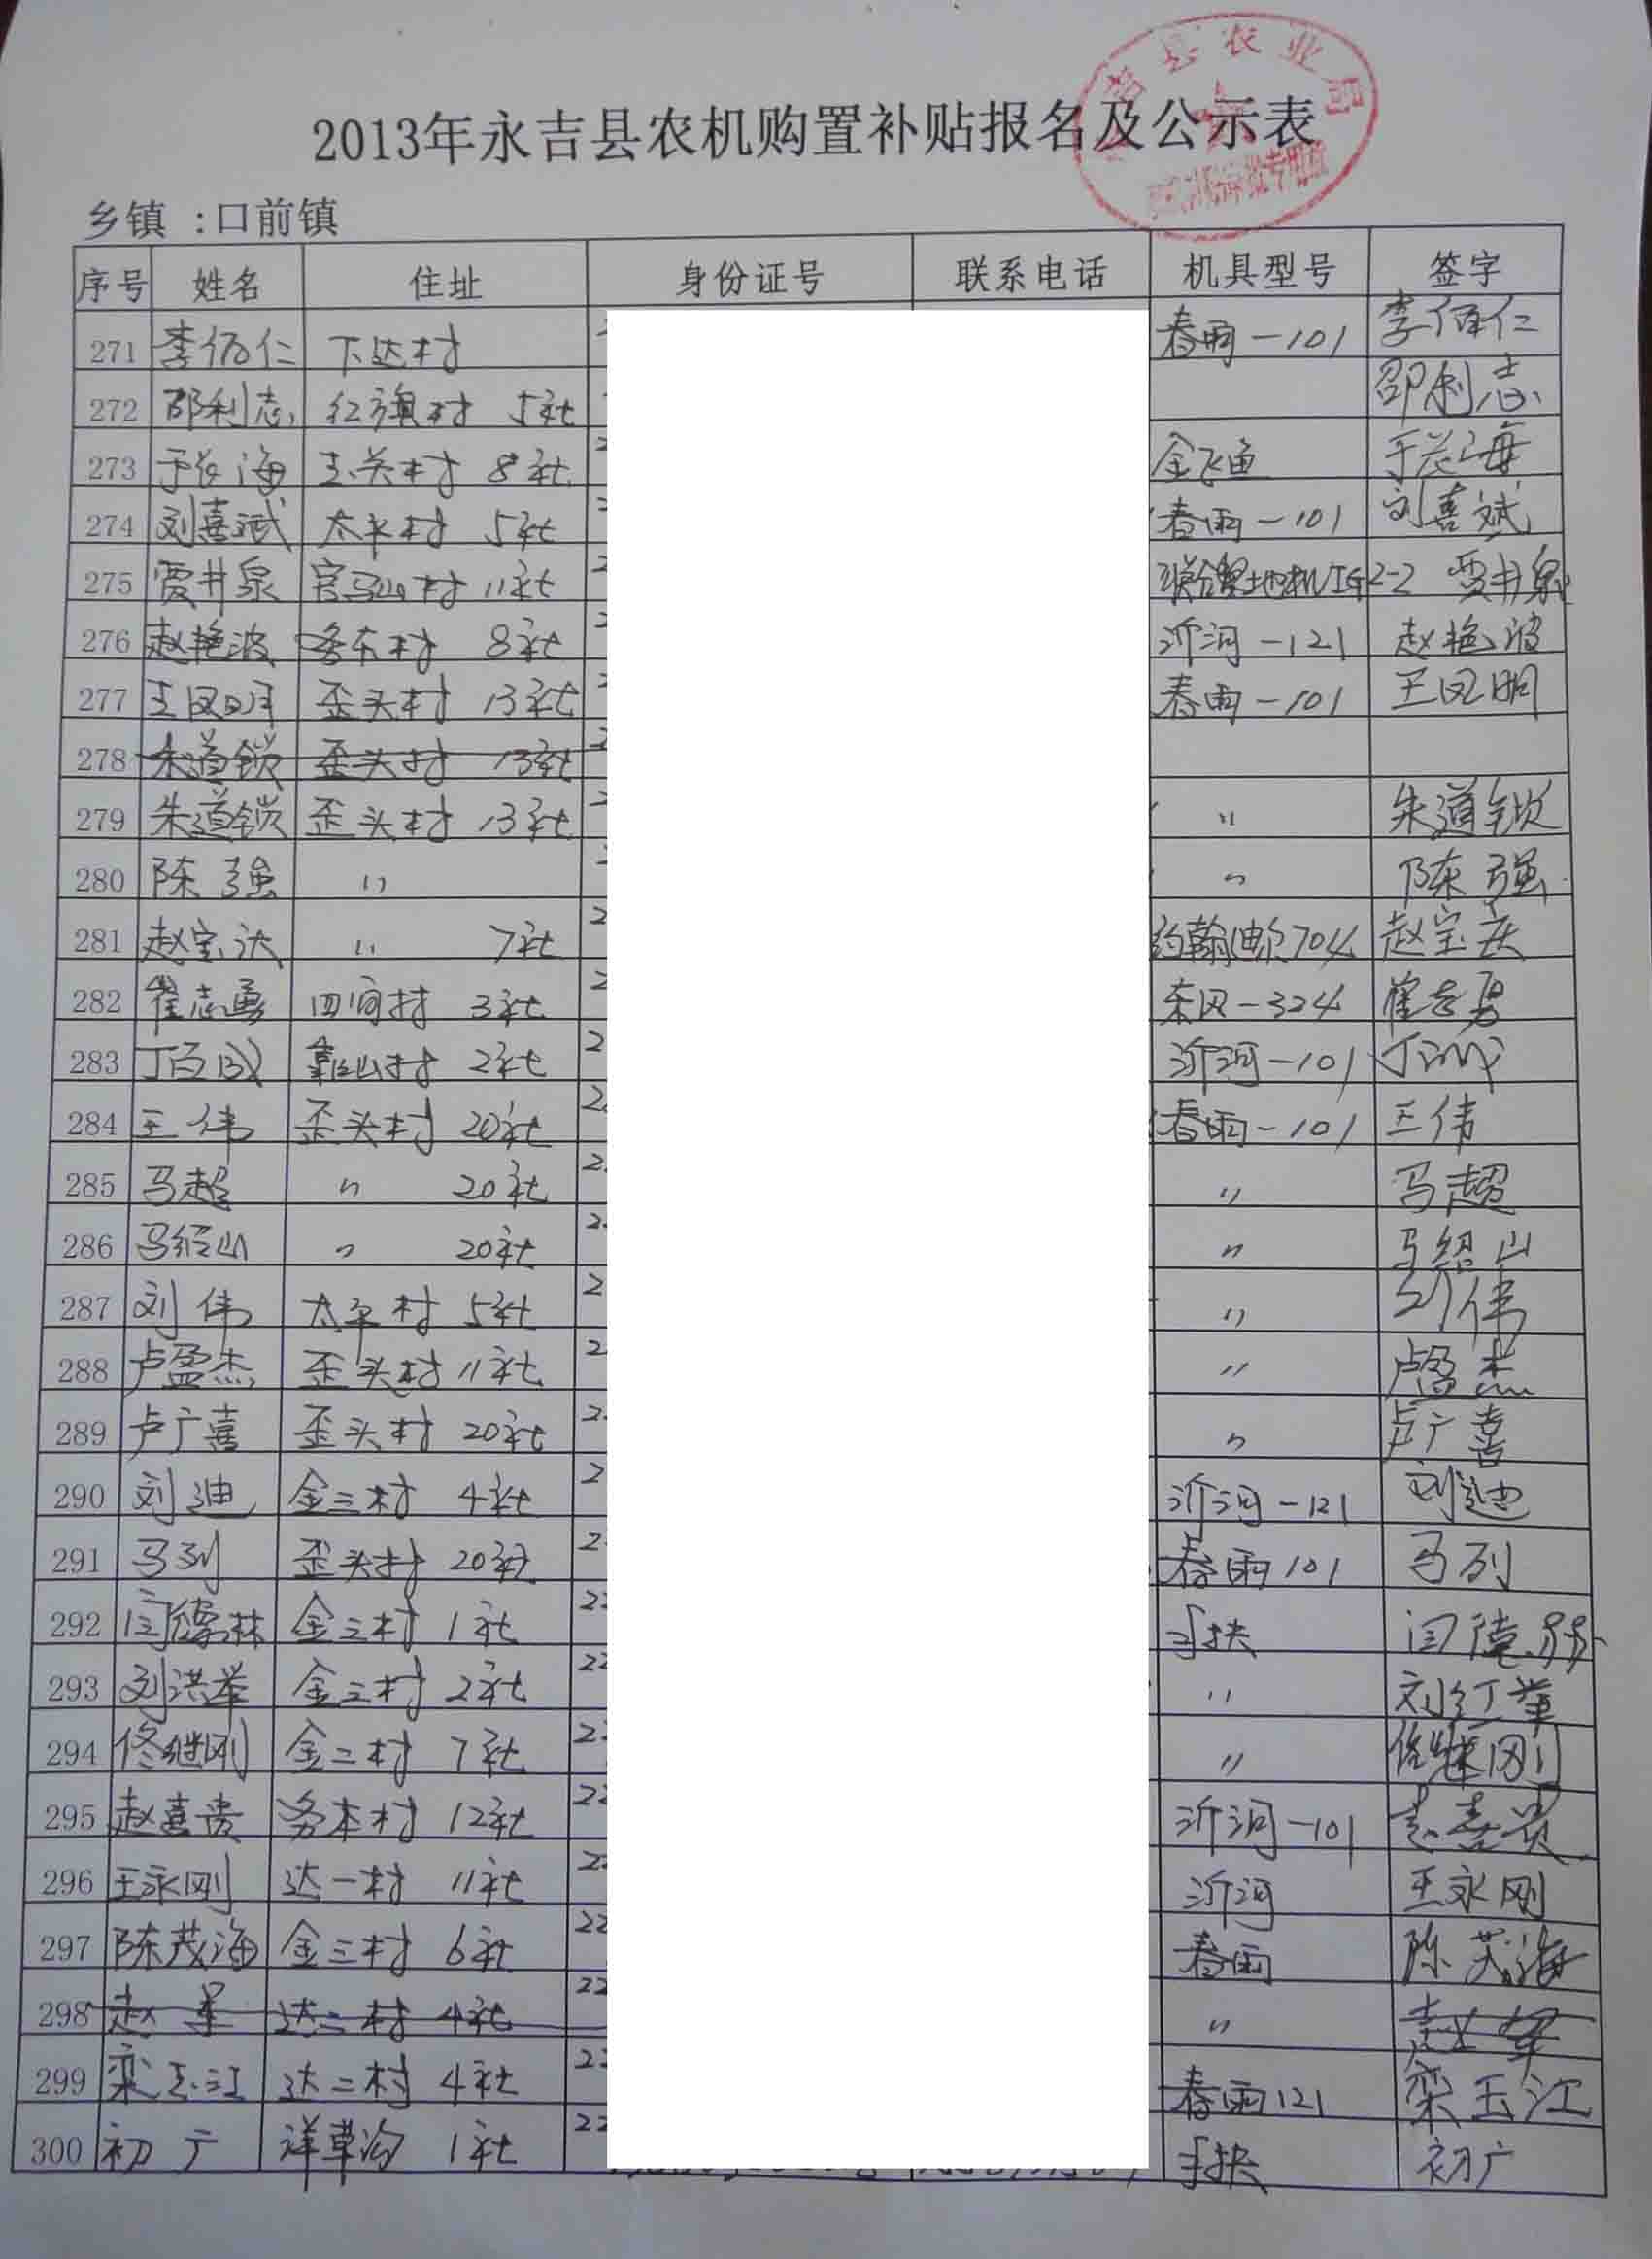 县农业局
2013年永吉县农机购置补贴报名及公示表
乡镇 :口前镇
序号 姓名 住址 身份证号 联系电话 机具型号 签字
271 李佰仁 下达村 春雨-101 李佰仁
272 邵利志 红旗村 5社 邵利志
273 海 村 8社 金飞鱼 海
274 刘喜斌 太平村 5社 春雨-101 刘喜斌
275 贾井泉 官马山村 11社 2-2 贾井泉
276 赵艳波 务本村 8社 沂河-121 赵艳波
277 王凤明 歪头村 13社 春雨-101 王凤明
278 朱道锁 歪头村 13社
279 朱道锁 歪头村 13社 〃 朱道锁
280 陈强 〃 〃 陈强
281 赵宝 〃 7社 约翰迪尔704 赵宝
282 崔志勇 四间村 3社 东风-324 崔志勇
283 丁百成 靠山村 2社 沂河-101 丁
284 王伟 歪头村 20社 春雨-101 王伟
285 马超 〃 20社 〃 马超
286 马绍山 〃 20社 〃 马绍山
287 刘伟 太平村 5社 〃 刘伟
288 卢盈杰 歪头村 11社 〃 卢盈杰
289 卢广喜 歪头村 20社 〃 卢广喜
290 刘迪 金三村 4社 沂河-121 刘迪
291 马列 歪头村 20社 春雨101 马列
292 闫德林 金三村 1社 手扶 闫德
293 刘洪举 金三村 2社 〃 刘红举
294 佟继刚 金二村 7社 〃 佟继刚
295 赵喜贵 务本村 12社 沂河-101 赵喜贵
296 王永刚 达一村 11社 沂河 王永刚
297 陈茂海 金三村 6社 春雨 陈茂海
298 赵 达二村 4社 〃 赵
299 栾玉江 达二村 4社 春雨121 栾玉江
300 初广 洋草沟 1社 手扶 初广